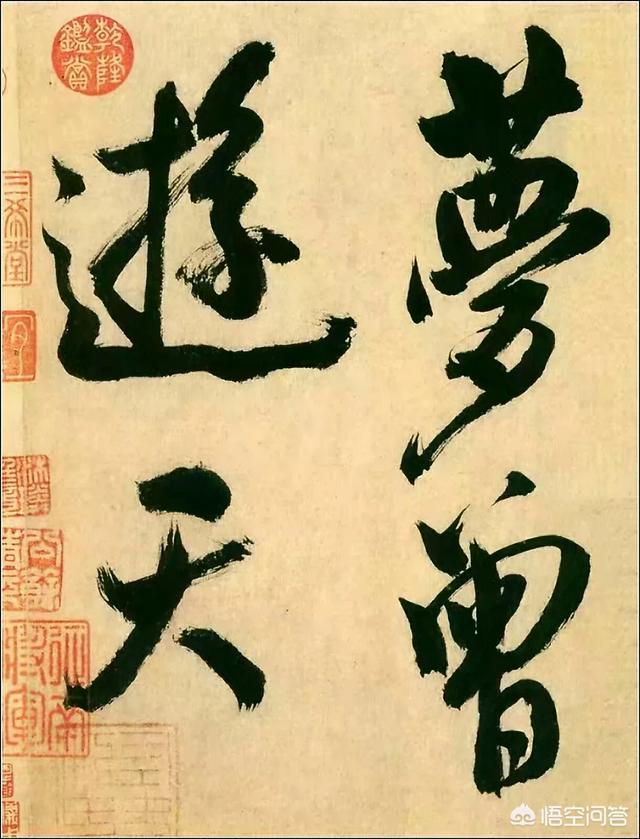 夢曾
遊天
乾隆
鑑賞
三希堂
悟空问答